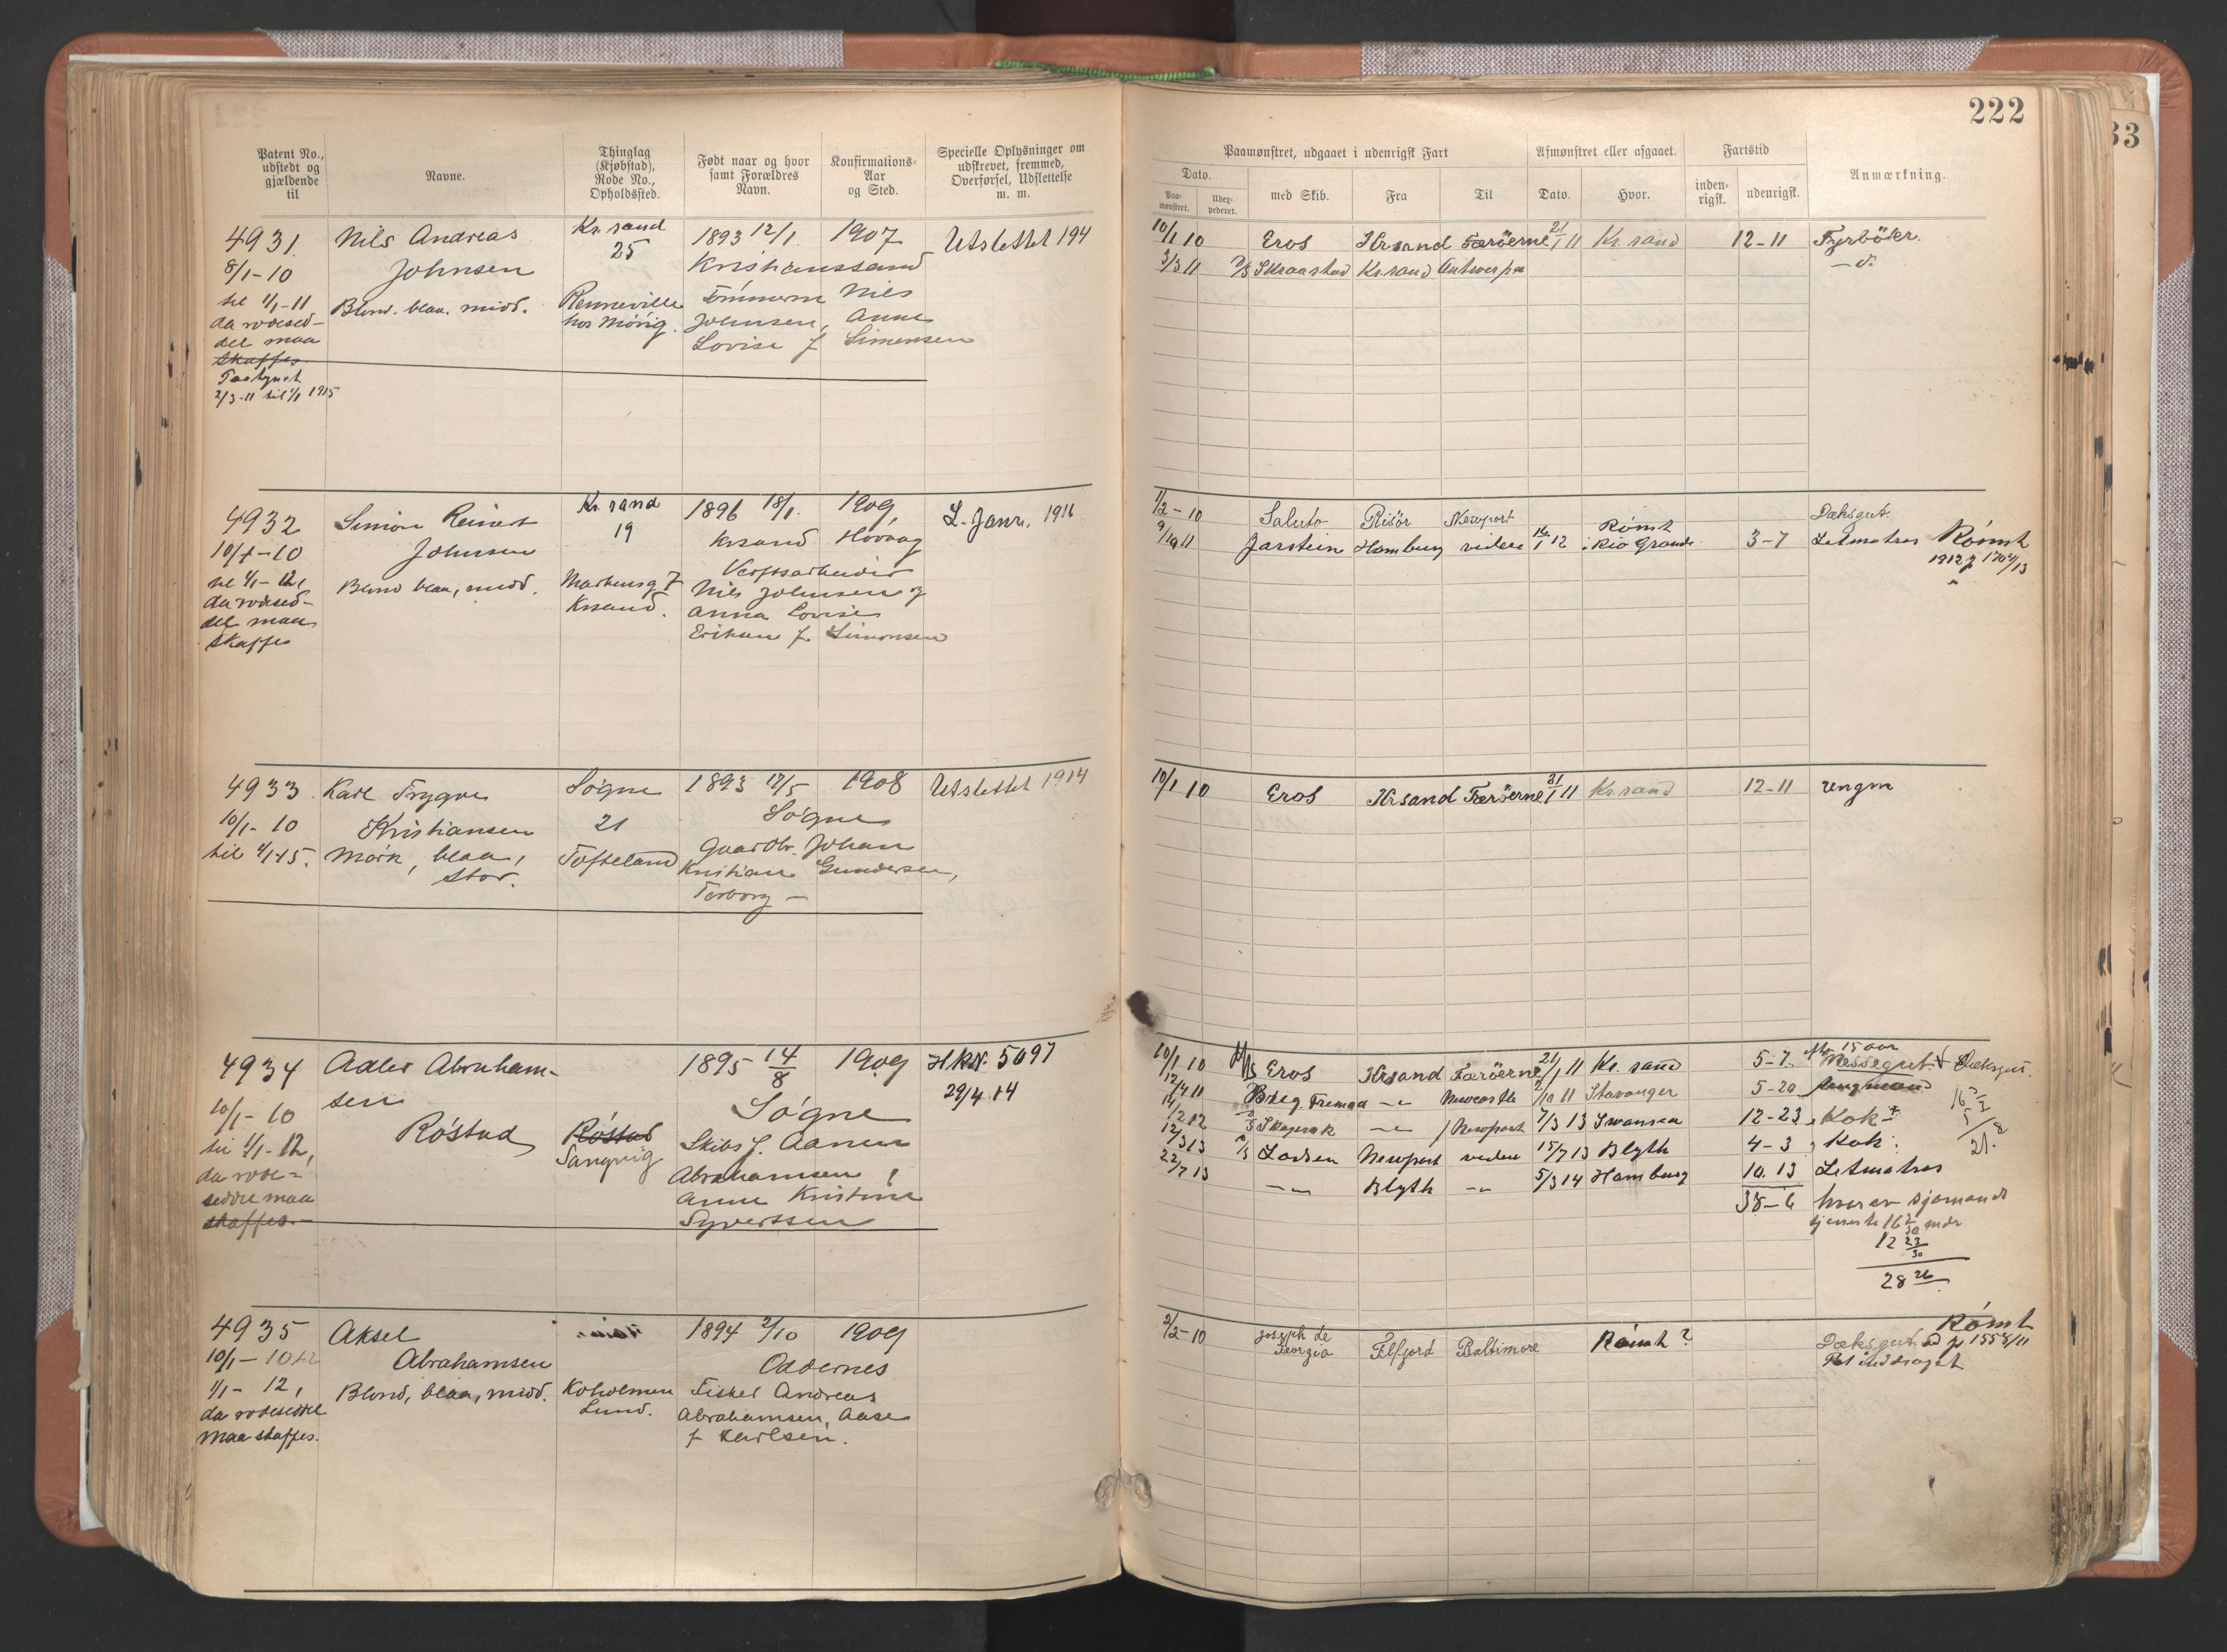 222
33
Patent No., udstedt og gjældende til
Navne.
Thinglag (Kjøbstad), Rode No., Opholdssted.
Født naar og hvor samt Forældres Navn.
Konfirmations-Aar og Sted.
Specielle Oplysninger om udskrevet, fremmed, Overførsel, Udslettelse m. m.
Paamønstret, udgaaet i udenrigsk Fart
Afmønstret eller afgaaet.
Fartstid
Anmærkning.
Dato.
Paa-mønstret.
Udex-pederet.
med Skib.
Fra
Til
Dato.
Hvor.
inden-rigsk.
udenrigsk.
4931.
8/1-10
til 1/1-11
da rodesed-
del maa
skaffes.
Fastgnet
2/3-11 til 1/1 1915
Nils Andreas
Johnsen
Blond. blaa. midd.
Kr.sand
25
Renneville
hos Mörig.
1893 12/1. 1907
Kristianssand
Tömmerm Nils
Johnsen, Anne
Lovise f Simensen
Utslettet 194
10/1 10 Eros Krsand Færöerne 21/1 11 Kr.sand 12-11 Fyrböter.
3/3 11 2/3 Skraastad Kr.sand Antwerpen
4932
10/1-10
til 1/1-12,
da rodesed-
del maa
skaffes
Simon Reinert
Johnsen
Blond blaa, midd.
Kr.sand
19
Markensg 7
Krsand.
1896 18/1. 1909
Krsand Høvaag
Verftsarbeider
Nils Johnsen og
Anna Lovise
Eriksen f. Simonsen
L. Janr. 1916
1/2-10 Saluto Risör Newport Dæksgut.
9/10 11 Jarstein Hamburg videre 16/1 12 Rømt i Rio Grande 3-7 Letmatros Rømt
4933
10/1-10
til 1/1-15.
Karl Trygve
Kristiansen
Mörk, blaa,
stor.
Søgne
21
Tofteland
1893 17/5 1908
Søgne
Gaardbr. Johan
Kristian Gundersen,
Torborg —
Utslettet 1914
10/1 10 Eros Krsand Færöerne 21/1 11 Kr.sand 12-11 Ungm
4934
10/1-10
til 1/1-12,
da rode-
seddel maa
skaffes.
Adler Abraham-
sen
Röstad
Röstad
Sangvig
1895 14/8 1909
Søgne
Skibs f. Aanen
Abrahamsen,
Anne Kristine
Syvertsen
HkN. 5097
29/4 14
10/1 10 Eros Krsand Færöerne 21/1 11 Kr.sand 5-7 Messegut + Dæksgut.
12/4 11 Fremad —"— Newcastle 1/10 11 Stavanger 5-20 Jungmand
1/2 12 Skagerak —"— Newport 7/3 13 Swansea 12-23 Kok
12/3 13 Lodsen Newport videre 15/7 13 Blyth 4-3 Kok
22/7 13 —"— Blyth —"— 5/3 14 Hamburg 10.13 Letmatros
38-6 hvorav sjømands
tjeneste 16 mdr
12 23/30
28 26
4935
10/1-10 til
1/1-12,
da rodeseddel
maa skaffes.
Aksel
Abrahamsen
Blond, blaa, midd.
Koholmen
Lund.
1894 2/10 1909
Oddernes
Fisker Andreas
Abrahamsen, Aase
f Karlsen.
2/2-10 Joseph de Georgio Felfjord Baltimore Rømt? Dæksgut. Rømt
Pat inddraget